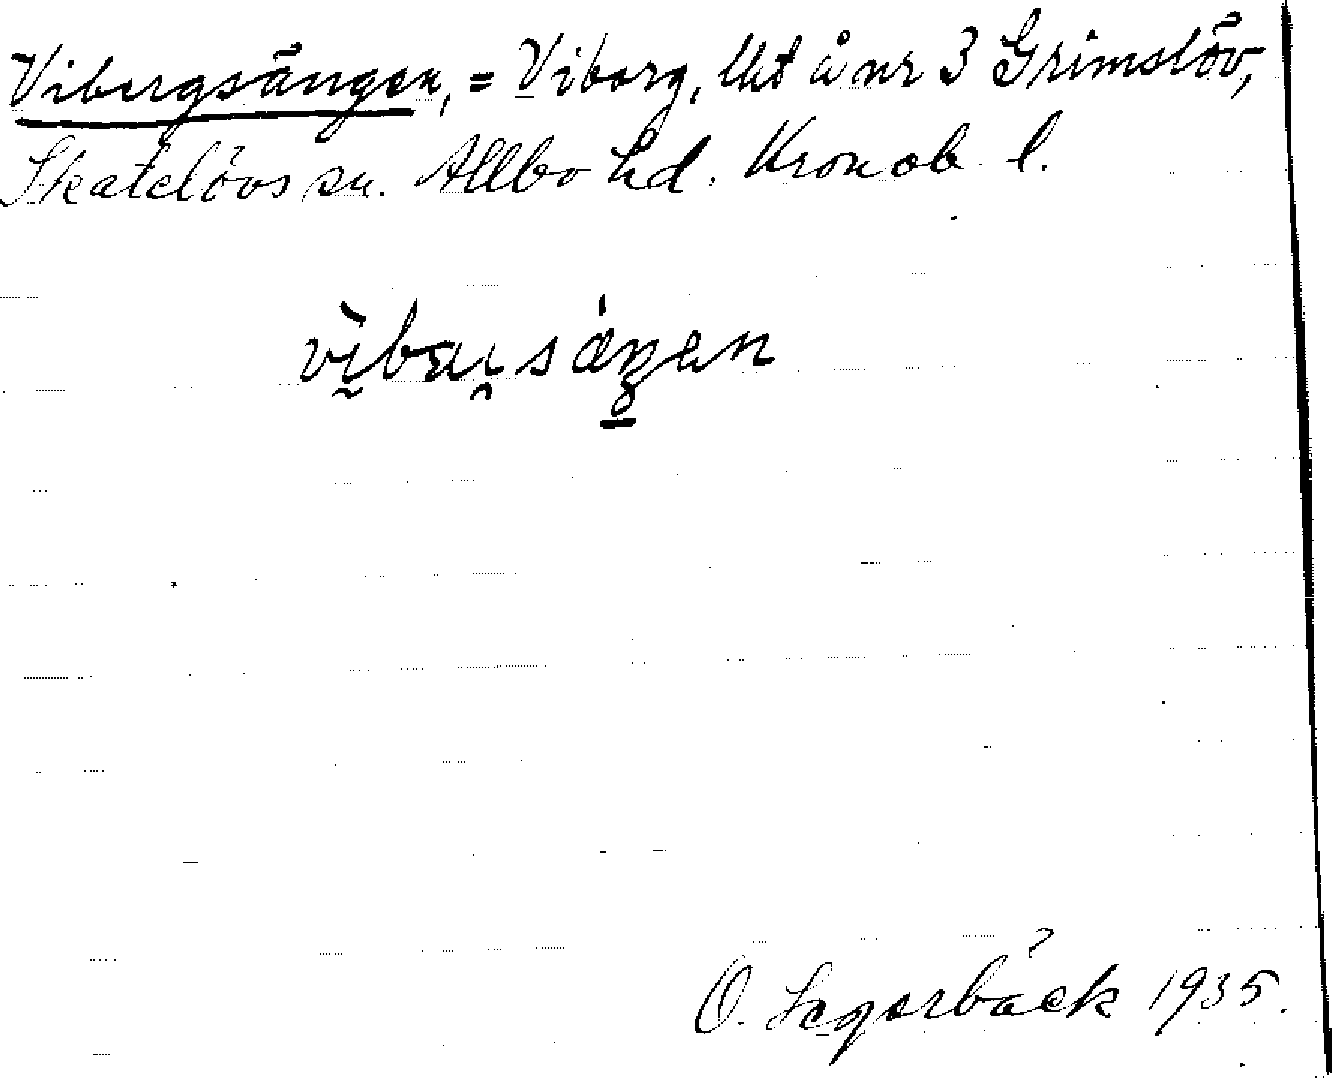 Viborgsängen, = Viborg, lht å nr 3 Grimslöv,
Skatelövs sn. Allbo hd. Kronob l.
O. Segerbäck 1935.